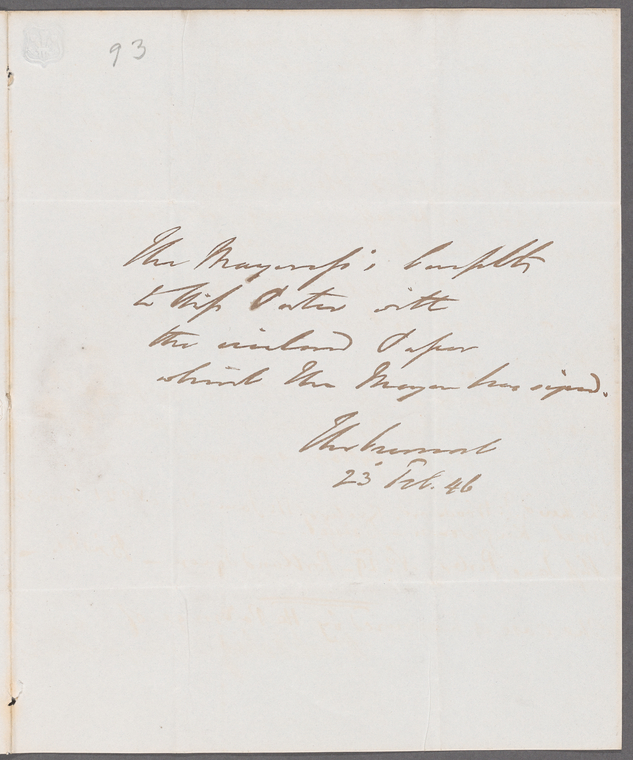 93
The Mayoress's Complts
to Miss Porter with
the inclosed Paper
which The Mayor has signed.
23 Feb. 46